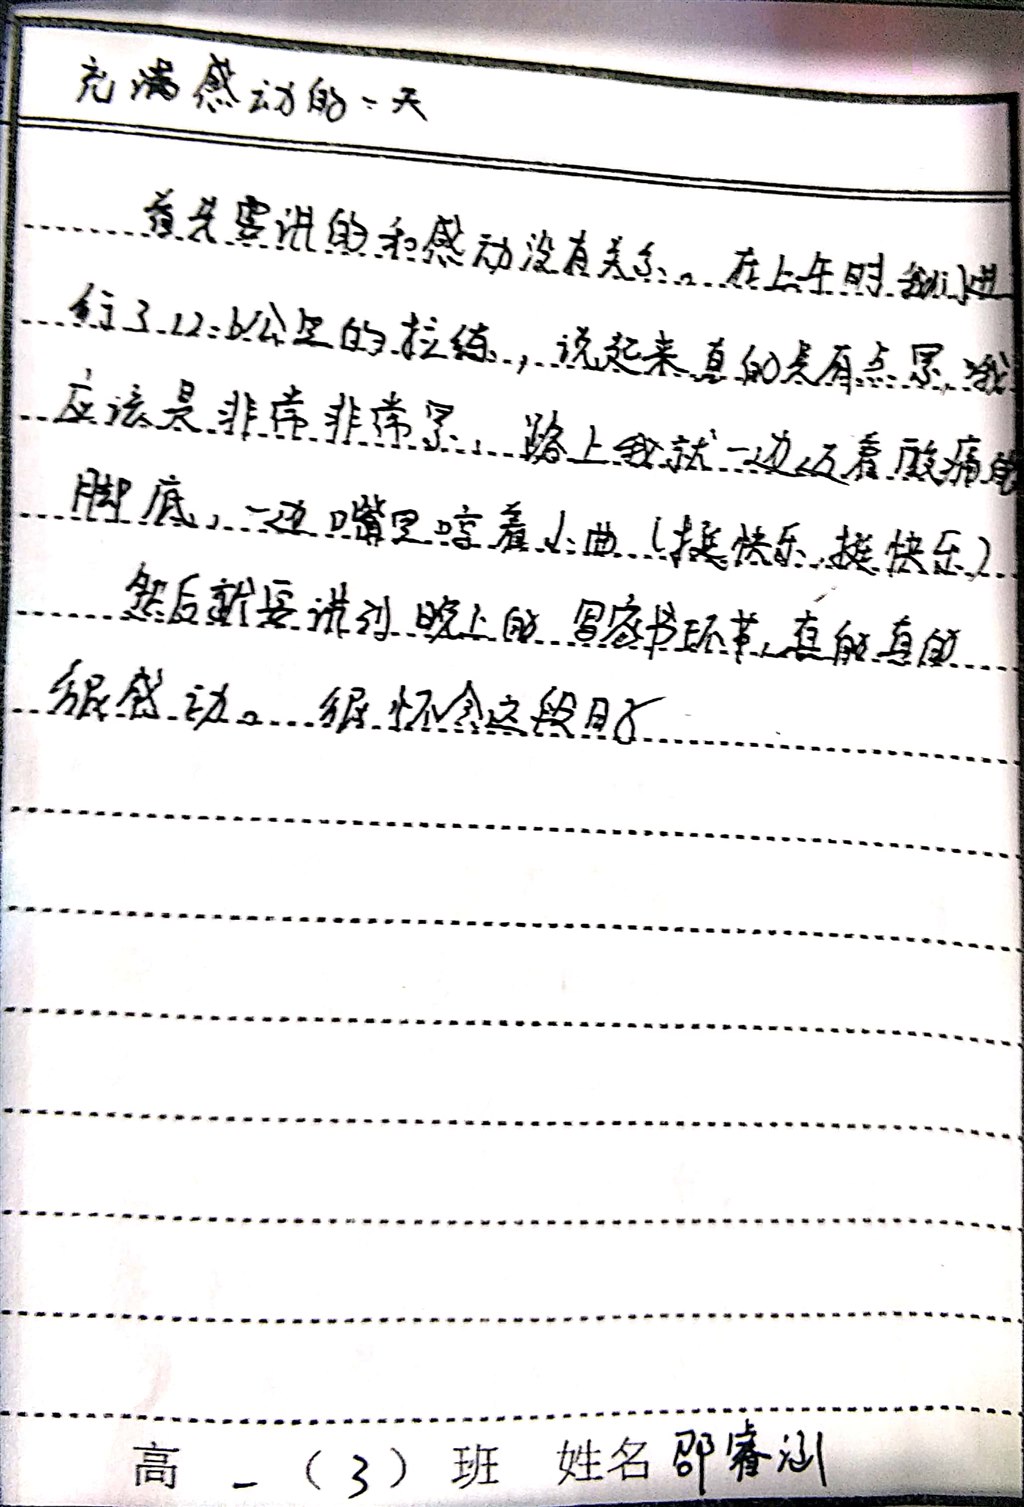 充满感动的一天
首先要说的和感动没有关系。在上午时我们进
行了12.6公里的拉练，说起来真的是有点累，哦
应该是非常非常累，路上我就一边忍着酸痛的
脚底，一边嘴里哼着小曲（挺快乐，挺快乐）
然后就要讲到晚上的写家书环节，真的真的
很感动。很怀念这段日子
高一（3）班 姓名邵睿涵